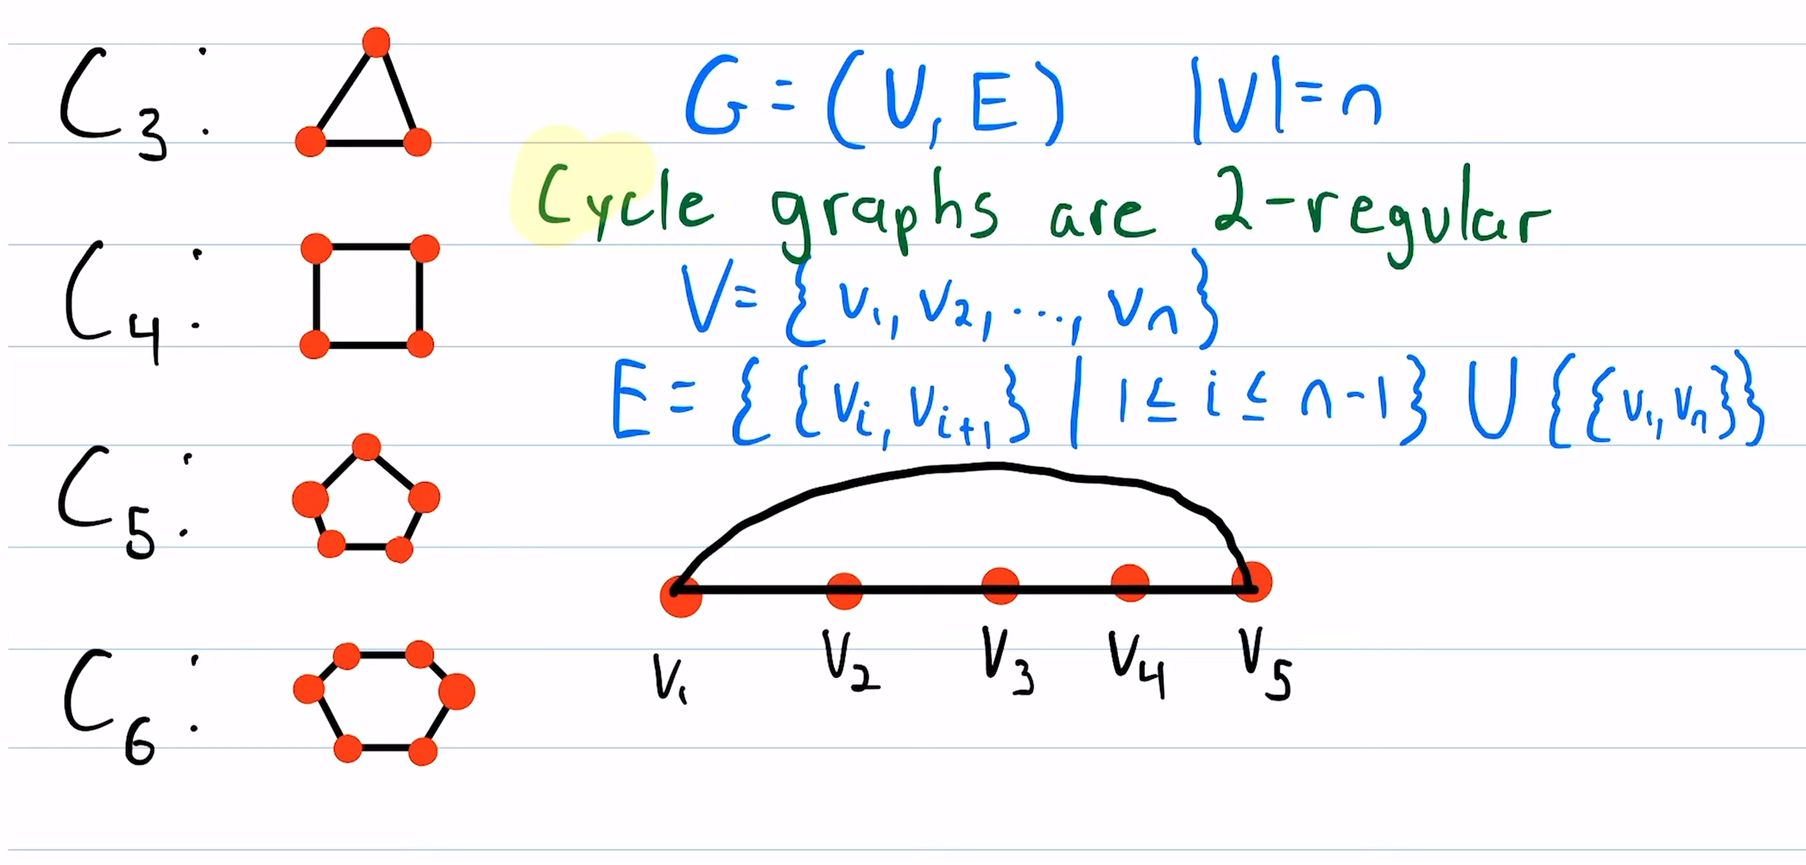 C₃:
G = (V, E) |V| = n
Cycle graphs are 2-regular
C₄:
V = { v₁, v₂, ..., vₙ }
E = { {vᵢ, vᵢ₊₁} | 1 ≤ i ≤ n-1 } ∪ { {v₁, vₙ} }
C₅:
V₁ V₂ V₃ V₄ V₅
C₆: